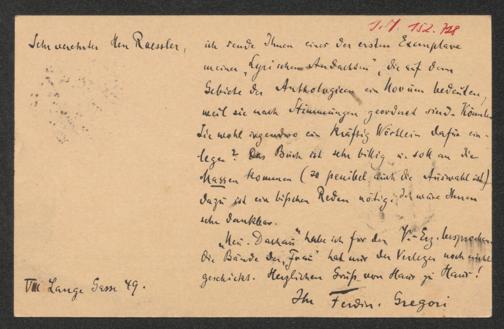 I.N. 152.728
Sehr verehrter Herr Raessler,
ich sende Ihnen eines der ersten Exemplare
meiner „Lyrischen Andachten", die auf dem
Gebiete der Anthologieen ein Novum bedeuten,
weil sie nach Stimmungen geordnet sind. Könnten
Sie wohl irgendwo ein kräftig Wörtlein dafür ein-
legen? Das Buch ist sehr billig u. soll an die
Massen kommen (so penibel auch die Auswahl ist)
dazu ist ein bißchen Reden nötig; ich wäre Ihnen
sehr dankbar.
„Neu-Dachau" habe ich für den V.-Erz. besprochen.
Die Bände der „Frau" hat mir der Verleger noch nicht
geschickt. Herzlichen Gruß von Haus zu Haus!
Ihr Ferdin. Gregori
VIII Lange Gasse 49.